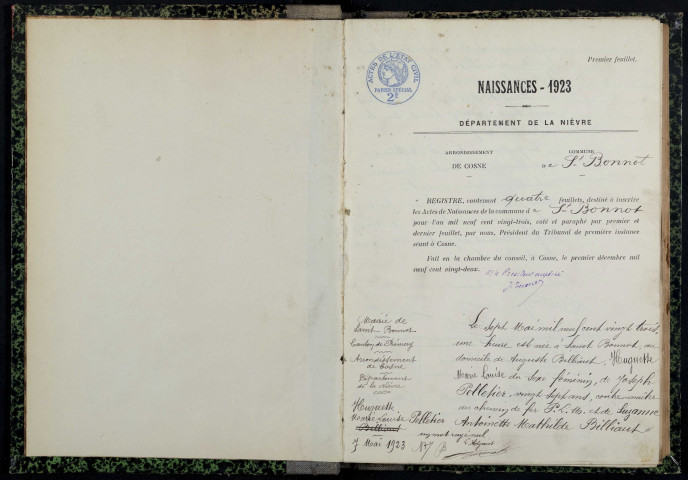 Premier feuillet.
ACTES DE L'ÉTAT CIVIL
PAPIER SPÉCIAL
2F
NAISSANCES - 1923
DÉPARTEMENT DE LA NIÈVRE
ARRONDISSEMENT
DE COSNE
COMMUNE
de St Bonnot
REGISTRE, contenant quatre feuillets, destiné à inscrire
les Actes de Naissances de la commune de St Bonnot
pour l'an mil neuf cent vingt-trois, coté et paraphé par premier et
dernier feuillet, par nous, Président du Tribunal de première instance
séant à Cosne.
Fait en la chambre du conseil, à Cosne, le premier décembre mil
neuf cent vingt-deux.
Mairie de
Saint Bonnot
Canton de Prémery
Arrondissement
de Cosne
Département
de la Nièvre
Huguette
Marie Louise
Billiaut Pelletier
7 Mai 1923
un mot rayé nul
Le sept Mai mil neuf cent vingt trois,
une heure est née à Saint Bonnot, au
domicile de Auguste Billiaut, Huguette
Marie Louise du sexe féminin, de Joseph
Pelletier, vingt sept ans,
au chemin de fer P. L. M. et de Suzanne
Antoinette Mathilde Billiaut